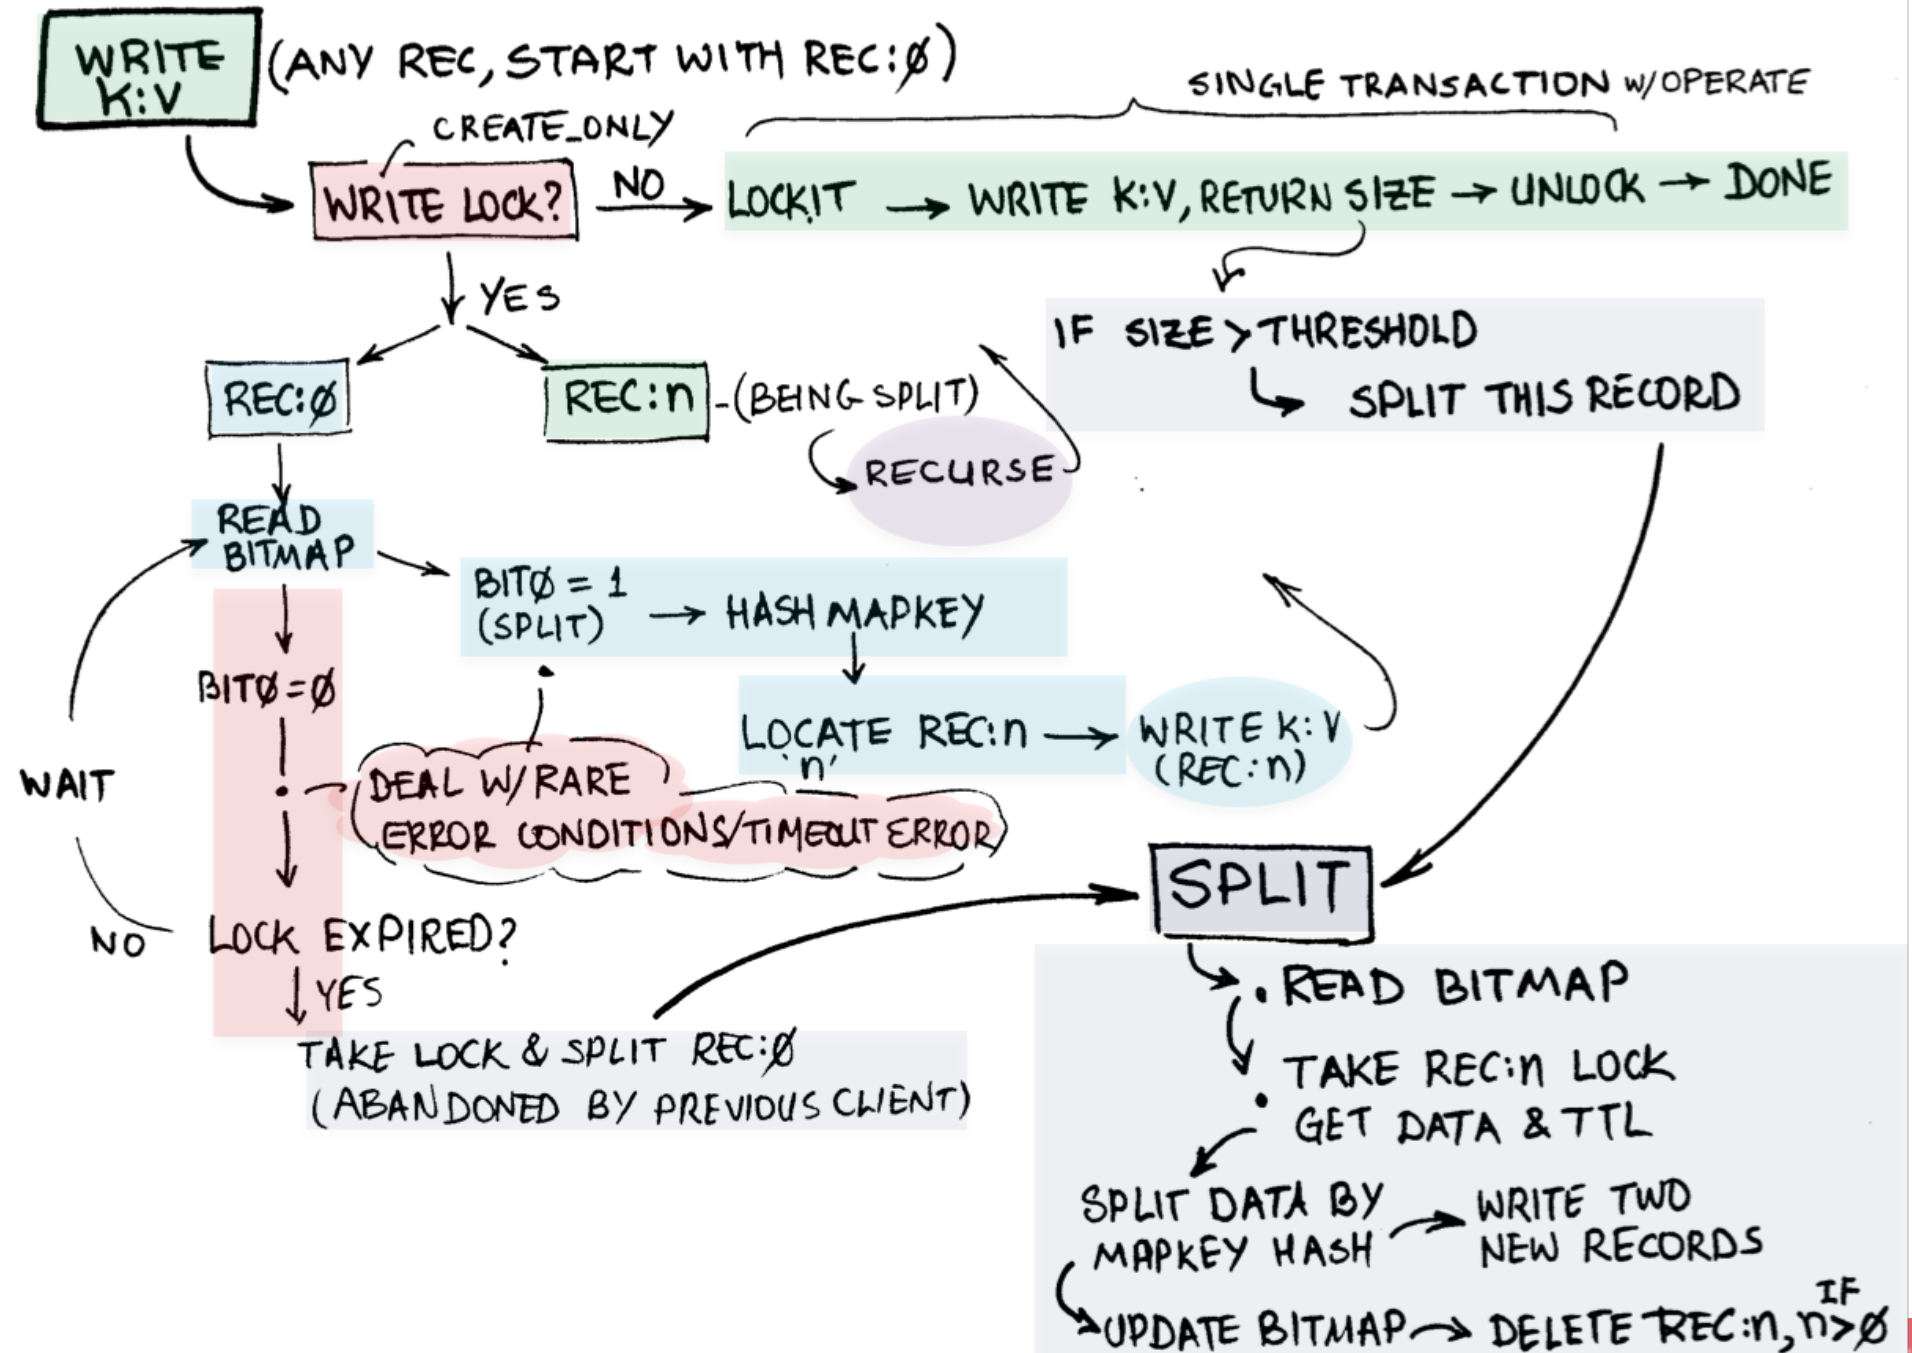 WRITE
K:V
(ANY REC, START WITH REC:Ø)
CREATE_ONLY
SINGLE TRANSACTION W/OPERATE
WRITE LOCK?
NO
LOCKIT → WRITE K:V, RETURN SIZE → UNLOCK → DONE
YES
IF SIZE > THRESHOLD
SPLIT THIS RECORD
REC:Ø
REC:n - (BEING SPLIT)
RECURSE
READ
BITMAP
BITØ = 1
(SPLIT)
→ HASH MAPKEY
BITØ=Ø
LOCATE REC:n →
'n'
WRITE K:V
(REC:n)
WAIT
DEAL W/RARE
ERROR CONDITIONS/TIMEOUT ERROR
NO
LOCK EXPIRED?
YES
TAKE LOCK & SPLIT REC:Ø
(ABANDONED BY PREVIOUS CLIENT)
SPLIT
• READ BITMAP
• TAKE REC:n LOCK
GET DATA & TTL
SPLIT DATA BY
MAPKEY HASH
WRITE TWO
NEW RECORDS
UPDATE BITMAP → DELETE REC:n, n>Ø
IF